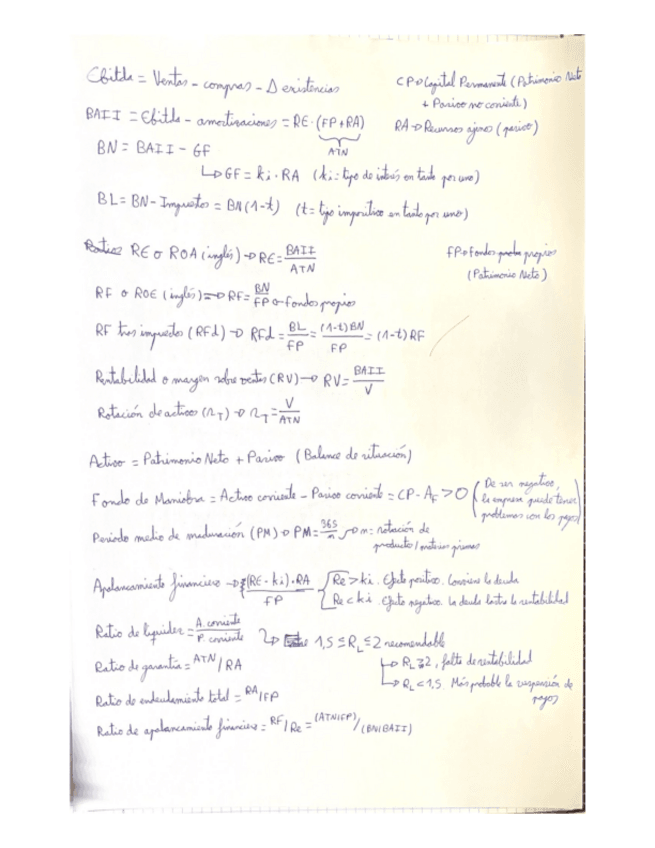 Ebitda = Ventas - compras - Δ existencias
CP → Capital Permanente (Patrimonio Neto
+ Pasivo no corriente)
BAII = Ebitda - amortizaciones = RE · (FP + RA)
ATN
RA → Recursos ajenos (pasivo)
BN = BAII - GF
↳ GF = ki · RA (ki = tipo de interés en tanto por uno)
BL = BN - Impuestos = BN (1-t) (t = tipo impositivo en tanto por uno)
Ratios RE o ROA (inglés) → RE = BAII / ATN
FP → fondos propios
(Patrimonio Neto)
RF o ROE (inglés) → RF = BN / FP → fondos propios
RF tras impuestos (RFd) → RFd = BL / FP = (1-t) BN / FP = (1-t) RF
Rentabilidad o margen sobre ventas (RV) → RV = BAII / V
Rotación de activos (r_T) → r_T = V / ATN
Activo = Patrimonio Neto + Pasivo (Balance de situación)
Fondo de Maniobra = Activo corriente - Pasivo corriente = CP - A_F > 0 (De ser negativo,
la empresa puede tener
problemas con los pagos)
Periodo medio de maduración (PM) → PM = 365 / n → n = rotación de
producto / materias primas
Apalancamiento financiero → (RE - ki) · RA / FP
Re > ki. Efecto positivo. Conviene la deuda
Re < ki. Efecto negativo. La deuda lastra la rentabilidad
Ratio de liquidez = A. corriente / P. corriente
↳ 1,5 ≤ R_L ≤ 2 recomendable
Ratio de garantía = ATN / RA
↳ R_L ≥ 2, falta de rentabilidad
↳ R_L < 1,5. Más probable la suspensión de
pagos
Ratio de endeudamiento total = RA / FP
Ratio de apalancamiento financiero = RF / Re = (ATN/FP) / (BN/BAII)